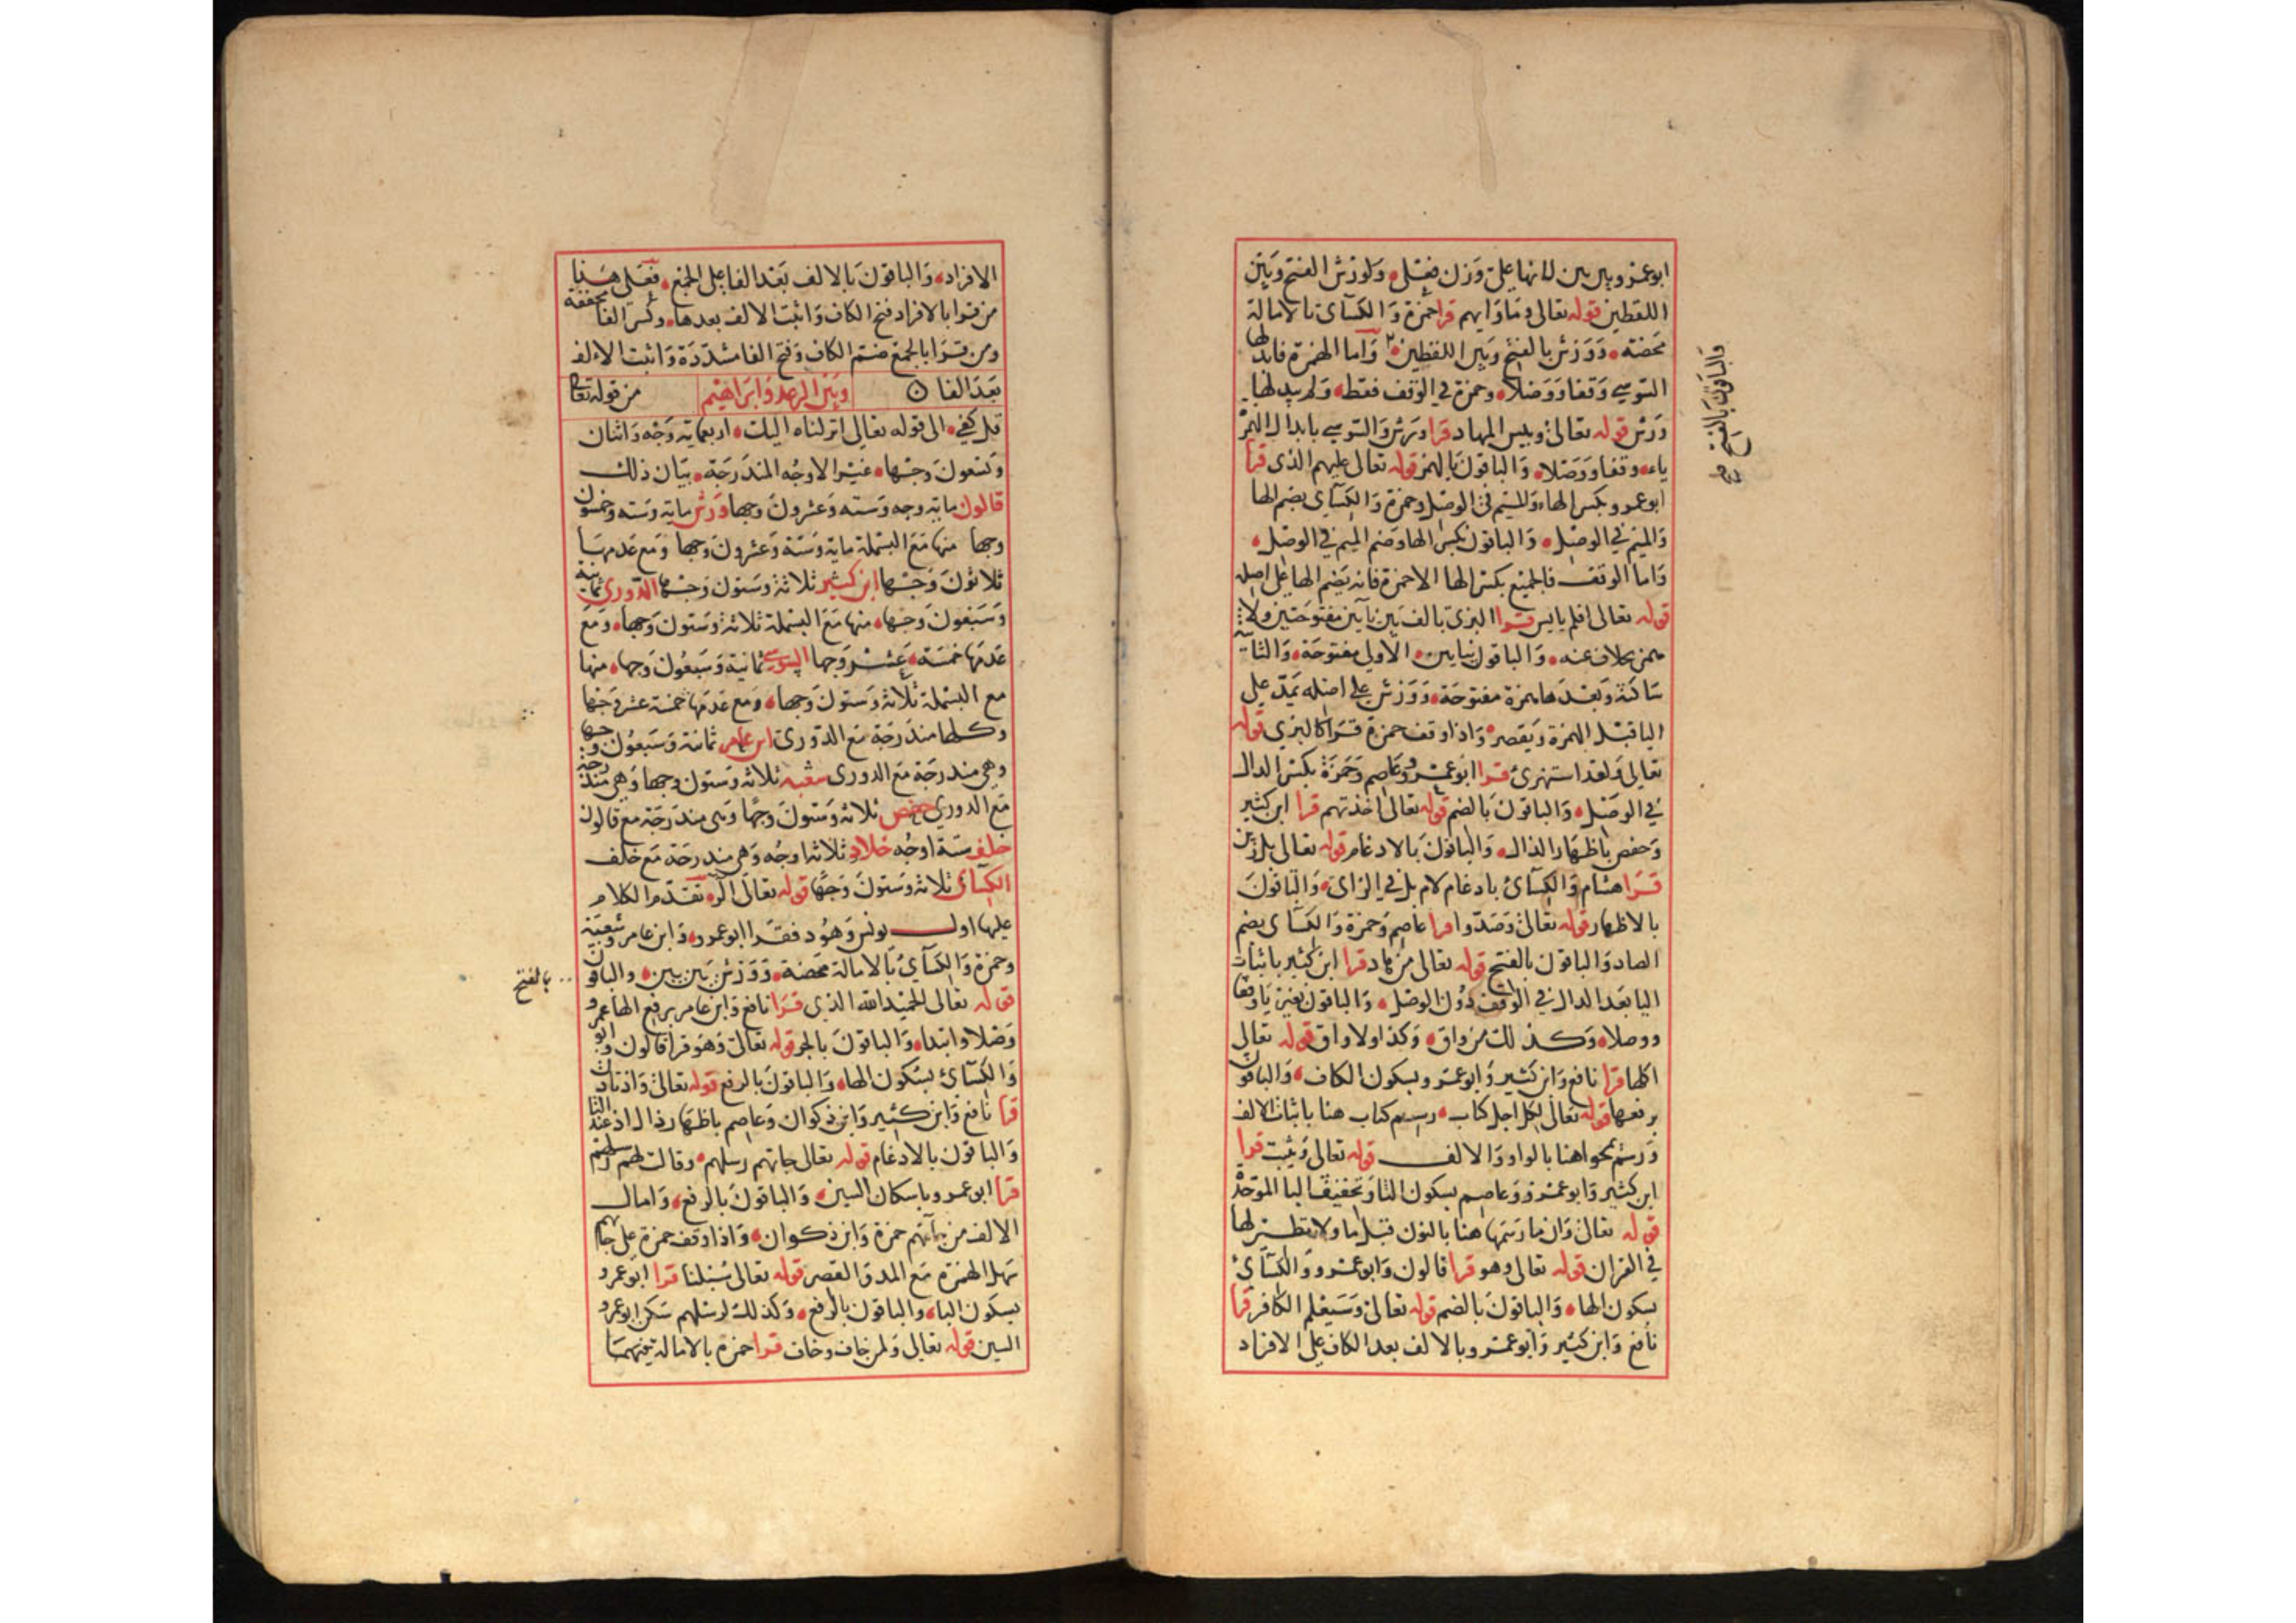 ابوعمرو وبين بين لانها على وزن فعلى ولورش الفتح وبين
اللفظين قوله تعالى ومأواهم قرا حمزة والكسآى بالامالة
محضة وورش بالفتح وبين اللفظين واما الهمزة فابدلها
السوسي وقفا ووصلا وحمزة في الوقف فقط ولم يبدلها
ورش قوله تعالى وبيس المهاد قرا ورش والسوسي بابدال الهمز
ياء وقفا ووصلا والباقون بالهمز قوله تعالى عليهم الذى قرا
ابوعمرو بكسر الهاء والميم في الوصل وحمزة والكسآى بضم الها
والميم في الوصل والباقون بكسر الها وضم الميم في الوصل
واما الوقف فالجميع بكسر الها الا حمزة فانه يضم الها على اصله
قوله تعالى افلم يايس قرا البزى بالف بين يآين مفتوحتين ولا
همز بخلاف عنه والباقون بيايين الاولى مفتوحة والثانية
ساكنة وبعدها همزة مفتوحة وورش على اصله يمد على
اليا قبل الهمزة ويقصر واذا وقف حمزة قرا كالبزي قوله
تعالى ولقد استهزئ قرا ابوعمرو وعاصم وحمزة بكسر الدال
في الوصل والباقون بالضم قوله تعالى اخذتهم قرا ابن كثير
وحفص باظهار الذال والباقون بالادغام قوله تعالى بل زين
قرا هشام والكسآئ بادغام لام بل في الزاى والباقون
بالاظهار قوله تعالى وصدوا قرا عاصم وحمزة والكسآى بضم
الصاد والباقون بالفتح قوله تعالى من هاد قرا ابن كثير باثبات
اليا بعد الدال في الوقف دون الوصل والباقون بغير يا وقفا
ووصلا وكذلك من واق وكذا ولا واق قوله تعالى
اكلها قرا نافع وابن كثير وابوعمرو بسكون الكاف والباقون
برفعها قوله تعالى لكل اجل كتاب رسم كتاب هنا باثبات الالف
ورسم يمحوا هنا بالواو والالف قوله تعالى ويثبت قرا
ابن كثير وابوعمرو وعاصم بسكون الثا وتخفيف البا الموحدة
قوله تعالى وان ما رسمها هنا بالنون قبل ما ولا نظير لها
في القران قوله تعالى وهو قرا قالون وابوعمرو والكسآئ
بسكون الها والباقون بالضم قوله تعالى وسيعلم الكافر قرا
نافع وابن كثير وابوعمرو وبالالف بعد الكاف على الافراد
والباقون بالفتح صح
الافراد والباقون بالالف بعد الفا على الجمع فعلى هذا
من قرا بالافراد فتح الكاف واثبت الالف بعدها وكسر الفا مخففة
ومن قرا بالجمع ضم الكاف وفتح الفا مشددة واثبت الالف
بعد الفا وبين الرعد وابراهيم من قوله تعا
قل كفى الى قوله تعالى انزلناه اليك اربعماية وجه واثنان
وتسعون وجها غير الاوجه المندرجة بيان ذلك
قالون ماية وجه وستة وعشرون وجها ورش ماية وستة وخمسون
وجها منها مع البسملة ماية وستة وعشرون وجها ومع عدمها
ثلاثون وجها ابن كثير ثلاثة وستون وجها الدورى ثمانية
وسبعون وجها منها مع البسملة ثلاثة وستون وجها ومع
عدمها خمسة عشر وجها السوسي ثمانية وسبعون وجها منها
مع البسملة ثلاثة وستون وجها ومع عدمها خمسة عشر وجها
وكلها مندرجة مع الدورى ابن عامر ثمانية وسبعون وجها
وهى مندرجة مع الدورى شعبه ثلاثة وستون وجها وهى مندرجة
مع الدورى حفص ثلاثة وستون وجها وهى مندرجة مع قالون
خلف ستة اوجه خلاد ثلاثة اوجه وهى مندرجة مع خلف
الكسآئ ثلاثة وستون وجها قوله تعالى الر تقدم الكلام
عليها اول يونس وهود فقرا ابوعمرو وابن عامر وشعبة
وحمزة والكسآئ بالامالة محضة وورش بين بين والباقون
بالفتح
قوله تعالى الحميد الله الذي قرا نافع وابن عامر برفع الها
وصلا وابتدا والباقون بالجر قوله تعالى وهو قرا قالون وابو عمرو
والكسآئ بسكون الها والباقون بالرفع قوله تعالى واذ تاذن
قرا نافع وابن كثير وابن ذكوان وعاصم باظهار ذال اذ عند التا
والباقون بالادغام قوله تعالى جاتهم رسلهم وقالت لهم رسلهم
قرا ابوعمرو باسكان السين والباقون بالرفع وامال
الالف من جآتهم حمزة وابن ذكوان واذا وقف حمزة على جاتهم
سهل الهمزة مع المد والقصر قوله تعالى سبلنا قرا ابوعمرو
بسكون البا والباقون بالرفع وكذلك لرسلهم سكن ابوعمرو
السين قوله تعالى ولمن خاف وخاف قرا حمزة بالامالة فيهما